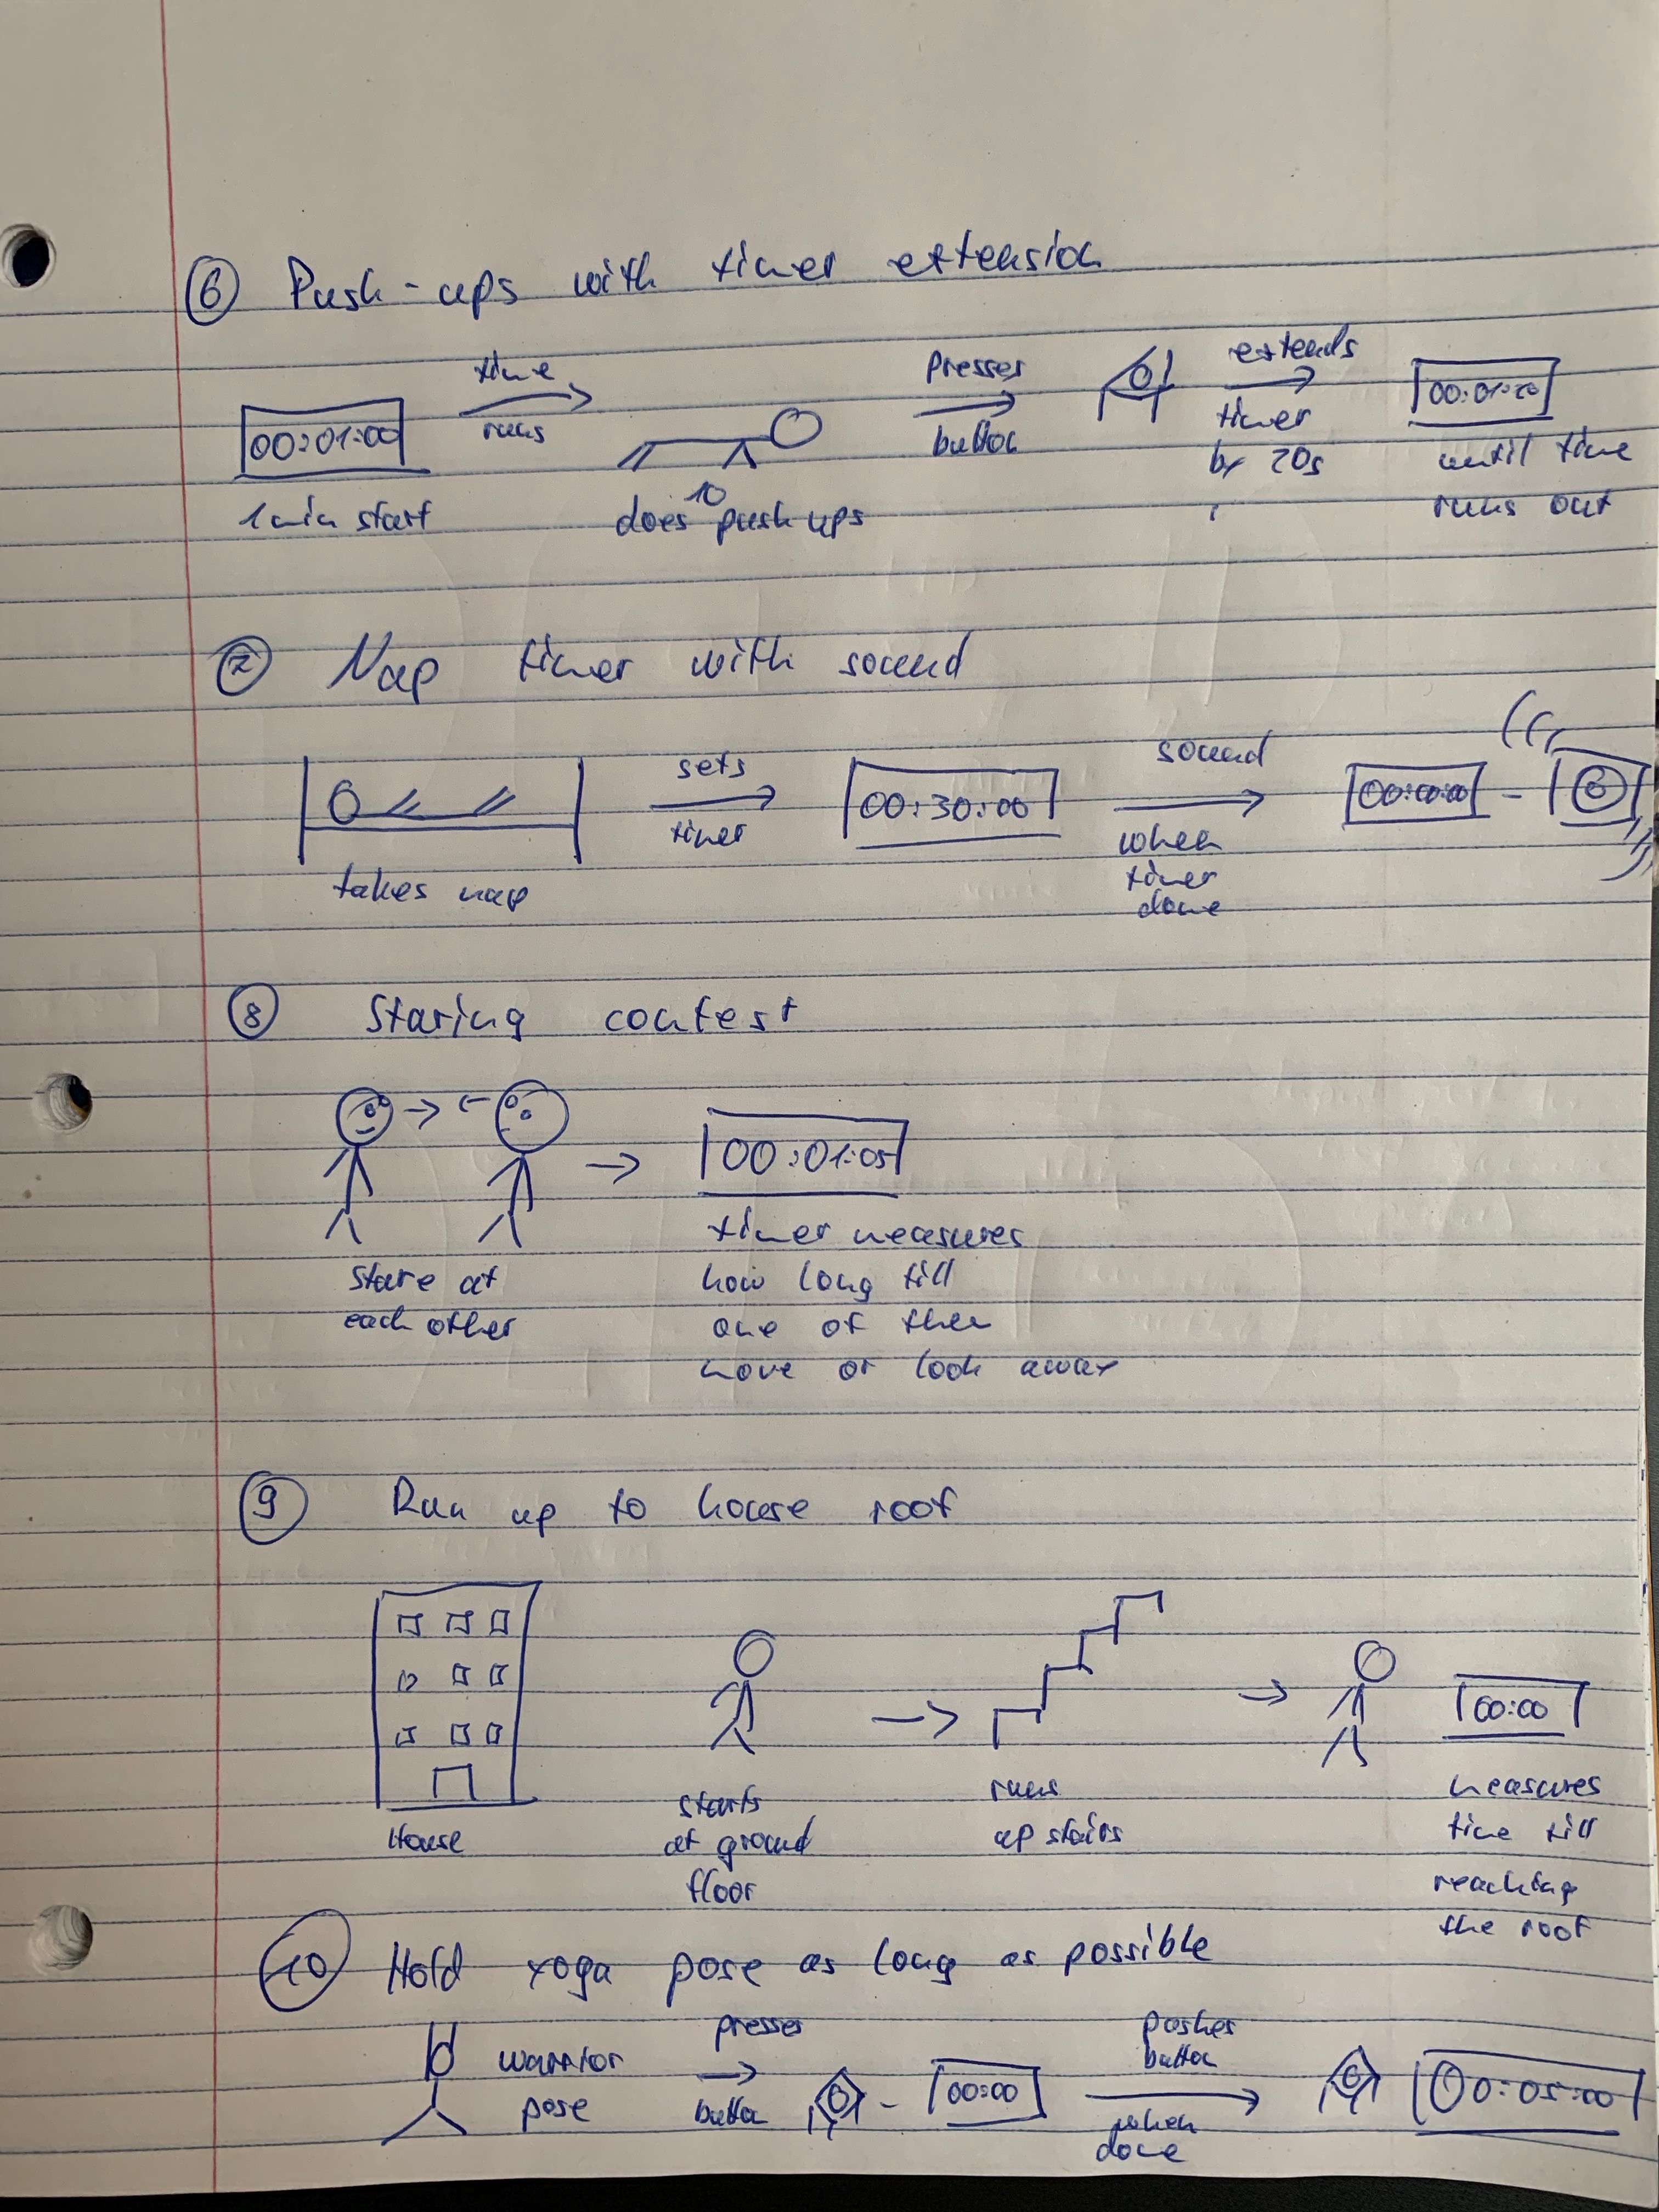 6 Push-ups with timer extension
00:01:00
1 min start
time
runs
10
does push ups
Presses
button
extends
timer
by 20s
00:01:20
until time
runs out
7 Nap timer with sound
takes nap
sets
timer
00:30:00
sound
when
timer
done
00:00:00
8 Staring contest
stare at
each other
00:01:05
timer measures
how long till
one of them
move or look away
9 Run up to house roof
House
starts
at ground
floor
runs
up stairs
00:00
measures
time till
reaching
the roof
10 Hold yoga pose as long as possible
warrior
pose
presses
button
00:00
pushes
button
when
done
00:05:00